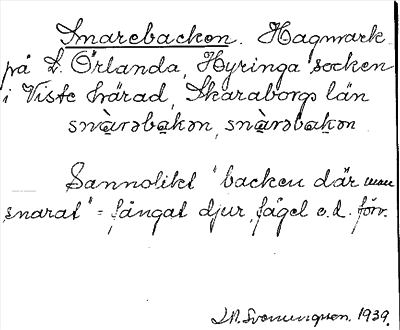 Snarebacken. Hagmark
på L. Örlanda, Hyringa socken
i Viste härad, Skaraborgs län
snàrəbakən, snàrəbakən
Sannolikt "backen där man
snarat" = fångat djur, fågel e.d. förr.
1939.